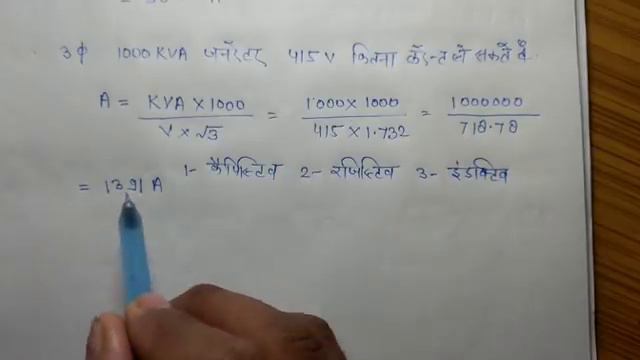 3φ 1000 KVA जनरेटर 415 V कितना करेन्ट ले सकते है
A = KVA X 1000 / V X √3 = 1000 X 1000 / 415 X 1.732 = 1000000 / 718.78
= 1391 A 1- कैपिस्टिव 2- रजिस्टिव 3- इंडक्टिव